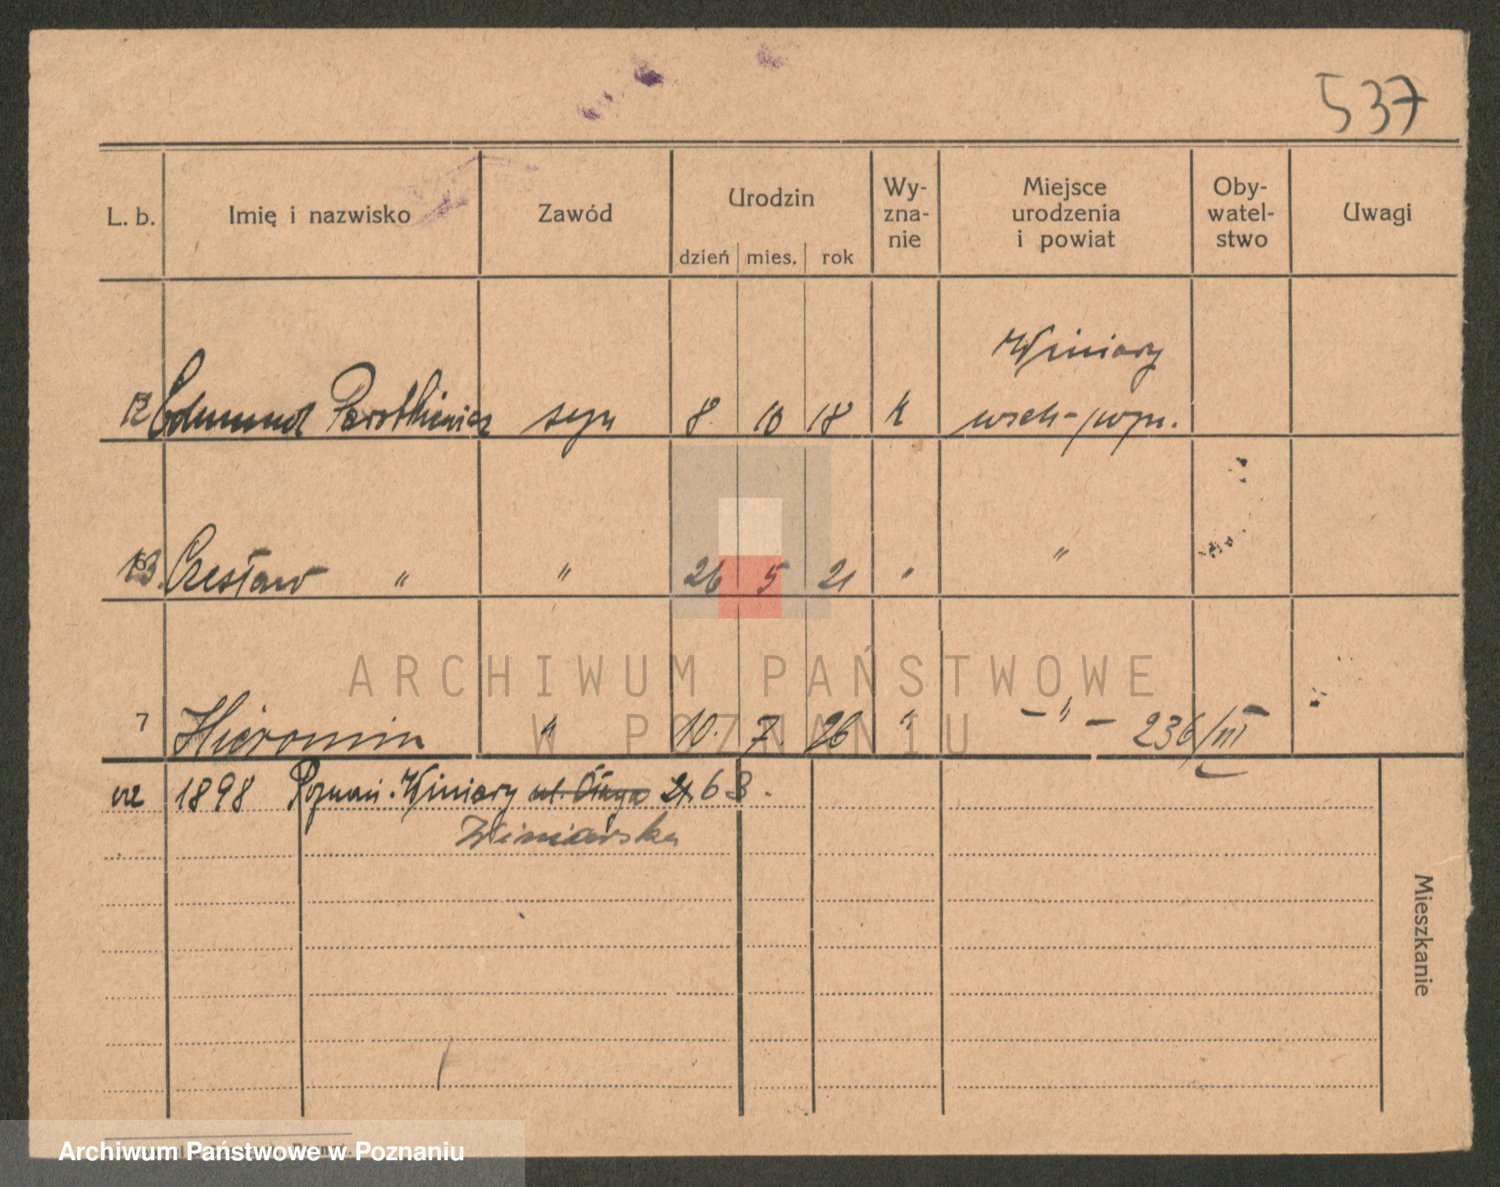 537
L. b. Imię i nazwisko Zawód Urodzin dzień mies. rok Wy-zna-nie Miejsce urodzenia i powiat Oby-watel-stwo Uwagi
Winiary
12 Edmund syn 8 10 18 k
13. Czesław " " 26 5 21 " "
7 Hieronim " 10. 7. 26 " - " - 236/III
1898 Poznań-Winiary ul. Długa 63.
Winiarska
Mieszkanie
ARCHIWUM PAŃSTWOWE
W POZNANIU
Archiwum Państwowe w Poznaniu